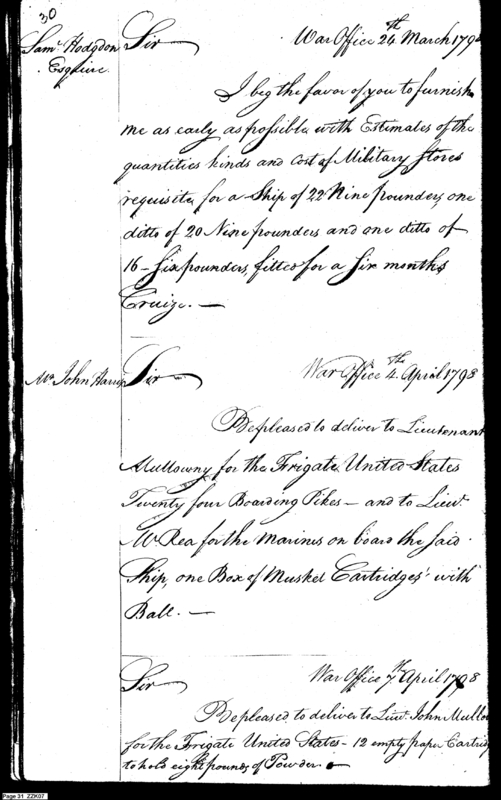 30
Saml. Hodgdon
Esquire.
Sir
War Office 24th March 1798
I beg the favor of you to furnish
me as early as possible with Estimates of the
quantities kinds and Cost of Military Stores
requisite for a Ship of 22 Nine pounders, one
ditto of 20 Nine pounders and one ditto of
16 - Six pounders, fitted for a six months
Cruize. —
Mr. John Harris
Sir
War Office 4th April 1798
Be pleased to deliver to Lieutenant
Mullowny for the Frigate United States
Twenty four Boarding Pikes — and to Lieut.
McRea for the Marines on board the said
Ship, one Box of Musket Cartridges with
Ball. —
Sir
War Office 7th April 1798
Be pleased to deliver to Lieut. John Mullo
for the Frigate United States - 12 empty paper Cartridg
to hold eight pounds of Powder. —
Page 31 ZZK07